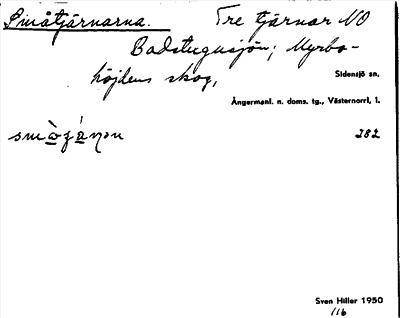 Småtjärnarna. Tre tjärnar NO
Badstugusjön; Myrbo-
höjdens skog,
Sidensjö sn.
Ångermanl. n. doms. tg., Västernorrl, l.
282
Sven Hiller 1950
116